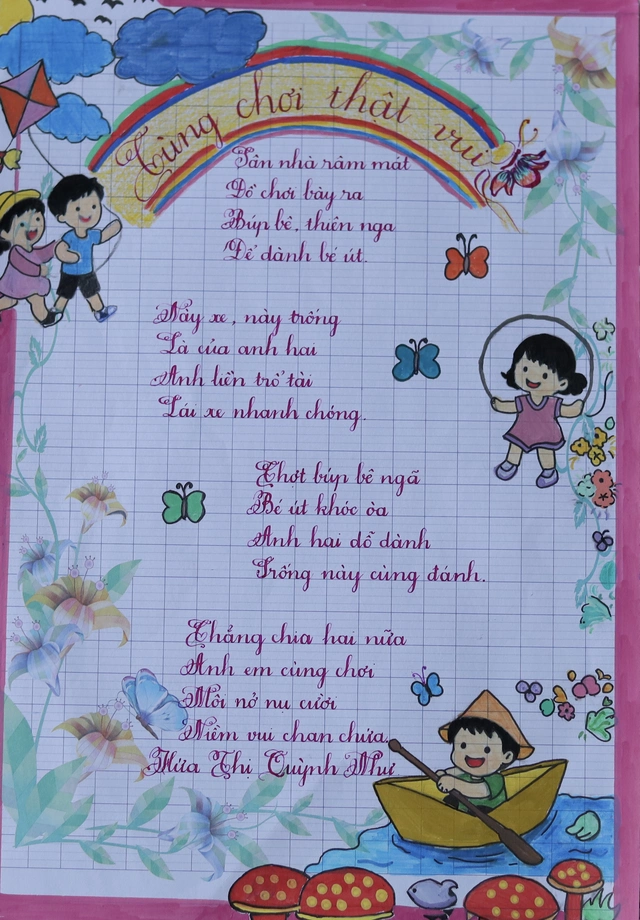 Cùng chơi thật vui
Sân nhà râm mát
Đồ chơi bày ra
Búp bê, thiên nga
Để dành bé út.
Nảy xe, này trống
Là của anh hai
Anh liền trổ tài
Lái xe nhanh chóng.
Chợt búp bê ngã
Bé út khóc òa
Anh hai dỗ dành
Trống này cùng đánh.
Chẳng chia hai nữa
Anh em cùng chơi
Môi nở nụ cười
Niềm vui chan chứa.
Hứa Thị Quỳnh Như